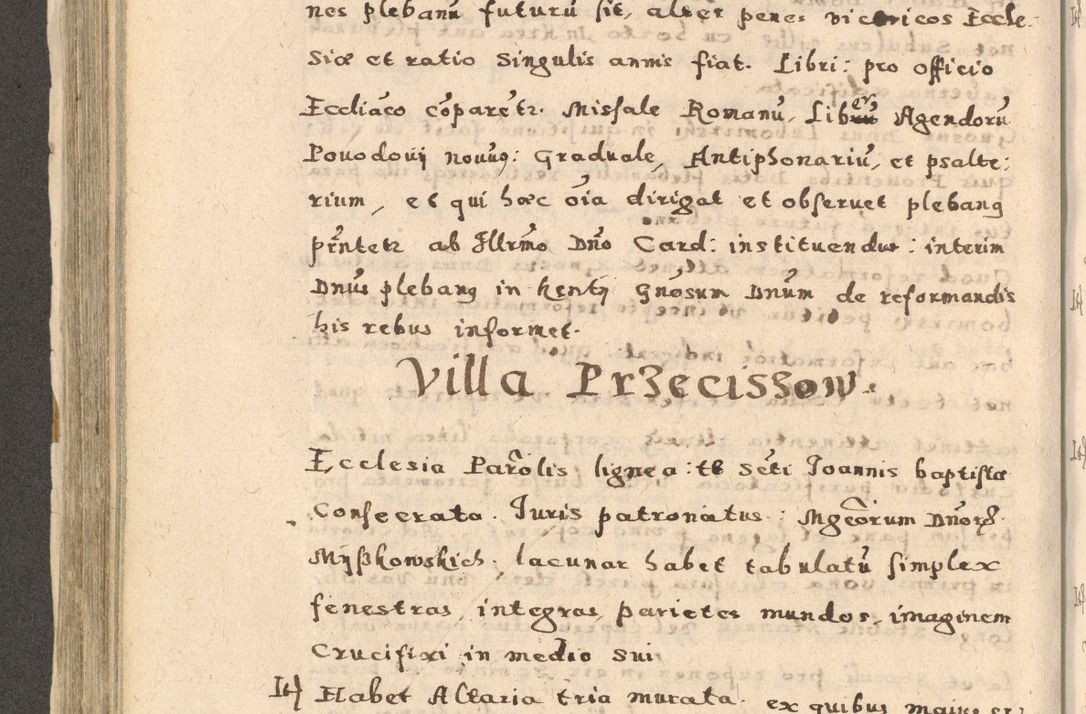 nes plebanũ futurũ sit, alter penes vicarios Eccle-
siæ et ratio singulis annis fiat. Libri: pro officio
Eccliaco cõparẽtr. Missale Romanũ, Librũ Agendorũ
Pouodouij nouuȝ: Graduale, Antiphonariũ, et psalte:
rium, et qui hæc oĩa dirigat et obseruet plebanȝ
pr̃ntetr ab Illrmo Dño Card: instituendus: interim
Dnus plebanȝ in Kentÿ Gñosum Dnũm de reformandis
his rebus informet.
Villa Przecisszow.
Ecclesia Parõlis lignea: tt Scti Joannis baptistæ
Consecrata. Juris patronatus: Mgcorum Dnorȝ.
Myßkowskich. lacunar habet tabulatũ simplex
fenestras, integras, parietes mundos, imaginem
Crucifixi in medio sui
It Habet Altaria tria murata. ex quibus maius